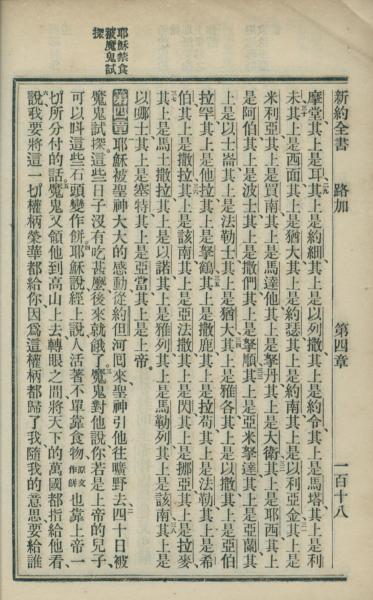 新約全書　路加　第四章　一百十八
摩堂其上是耳其上是約細其上是以列撒其上是約令其上是馬塔其上是利
未其上是西面其上是猶大其上是約瑟其上是約南其上是以利亞金其上是
米利亞其上是買南其上是馬達他其上是拏丹其上是大衛其上是耶西其上
是阿伯其上是波士其上是撒們其上是拏順其上是亞米拏達其上是亞蘭其
上是以士崙其上是法勒士其上是猶大其上是雅各其上是以撒其上是亞伯
拉罕其上是他拉其上是拏鶴其上是撒鹿其上是拉苟其上是法勒其上是希
伯其上是撒拉其上是該南其上是亞法撒其上是閃其上是挪亞其上是拉麥
其上是馬土撒拉其上是以諾其上是雅列其上是馬勒列其上是該南其上是
以哪士其上是塞特其上是亞當其上是上帝。
第四章 耶穌被聖神大大的感動從約但河囘來聖神引他往曠野去四十日被
魔鬼試探這些日子沒有吃甚麼後來就餓了魔鬼對他說你若是上帝的兒子
可以呌這些石頭變作餅耶穌說經上說人活著不單靠食物原文作餅也靠上帝一
切所分付的話魔鬼又領他到高山上去轉眼之間將天下的萬國都指給他看
說我要將這一切權柄榮華都給你因爲這權柄都歸了我隨我的意思要給誰
耶穌禁食
被魔鬼試
探